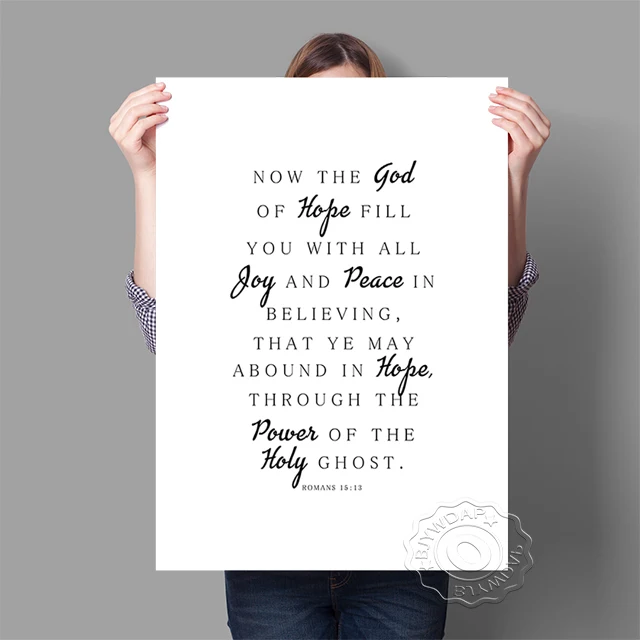 NOW THE God
OF Hope FILL
YOU WITH ALL
Joy AND Peace IN
BELIEVING,
THAT YE MAY
ABOUND IN Hope,
THROUGH THE
Power OF THE
Holy GHOST.
ROMANS 15:13